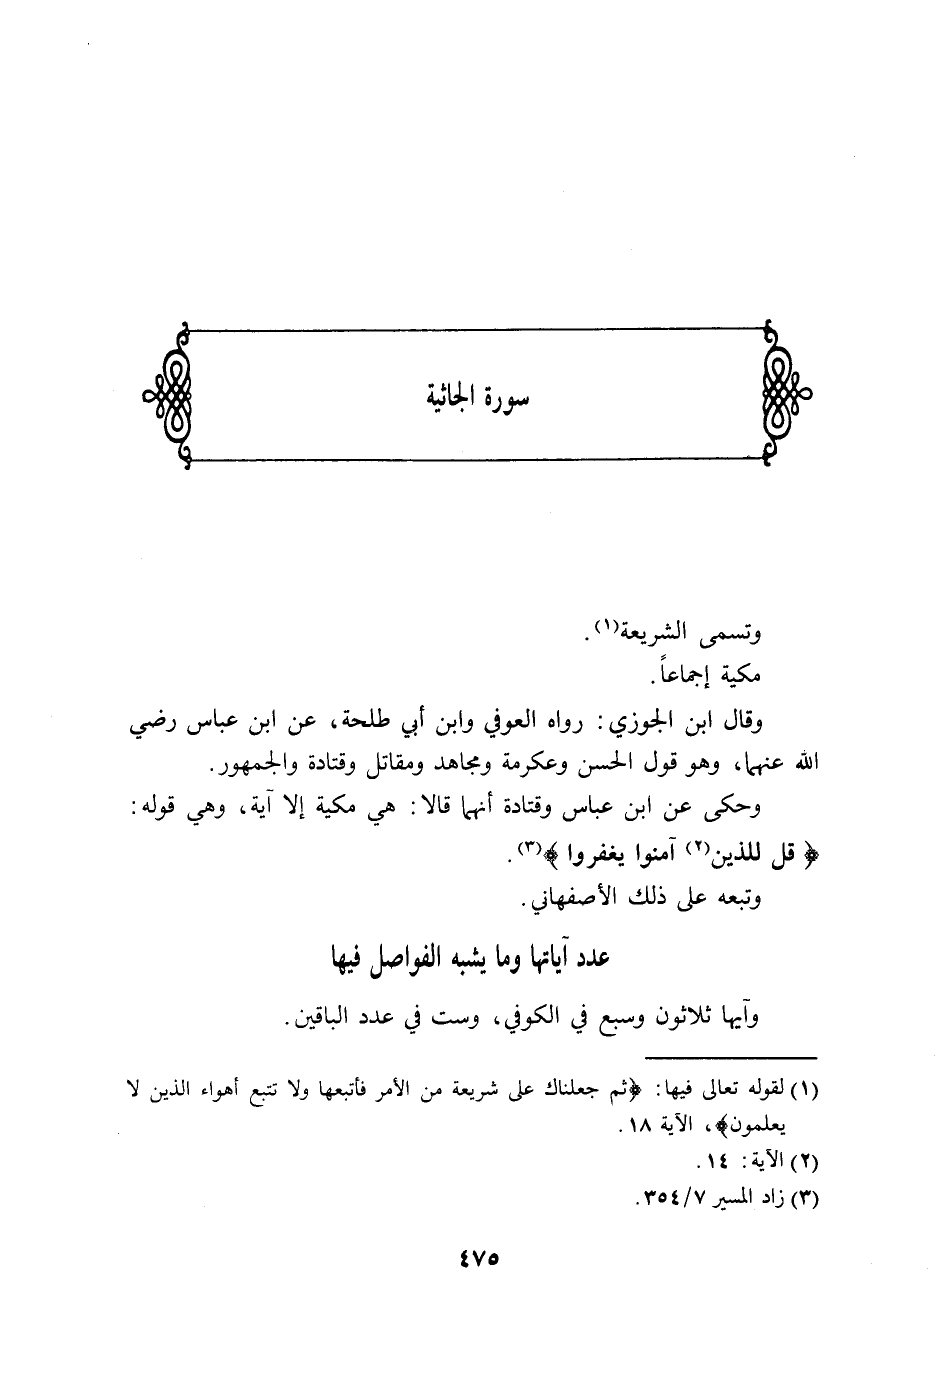 سورة الجاثية
وتسمى الشريعة(١).
مكية إجماعاً.
وقال ابن الجوزي: رواه العوفي وابن أبي طلحة، عن ابن عباس رضي
الله عنهما، وهو قول الحسن وعكرمة ومجاهد ومقاتل وقتادة والجمهور.
وحكى عن ابن عباس وقتادة أنهما قالا: هي مكية إلا آية، وهي قوله:
﴿ قل للذين(٢) آمنوا يغفروا ﴾(٣).
وتبعه على ذلك الأصفهاني.
عدد آياتها وما يشبه الفواصل فيها
وآيها ثلاثون وسبع في الكوفي، وست في عدد الباقين.
(١) لقوله تعالى فيها: ﴿ثم جعلناك على شريعة من الأمر فأتبعها ولا تتبع أهواء الذين لا
يعلمون﴾، الآية ١٨.
(٢) الآية: ١٤.
(٣) زاد المسير ٣٥٤/٧.
٤٧٥